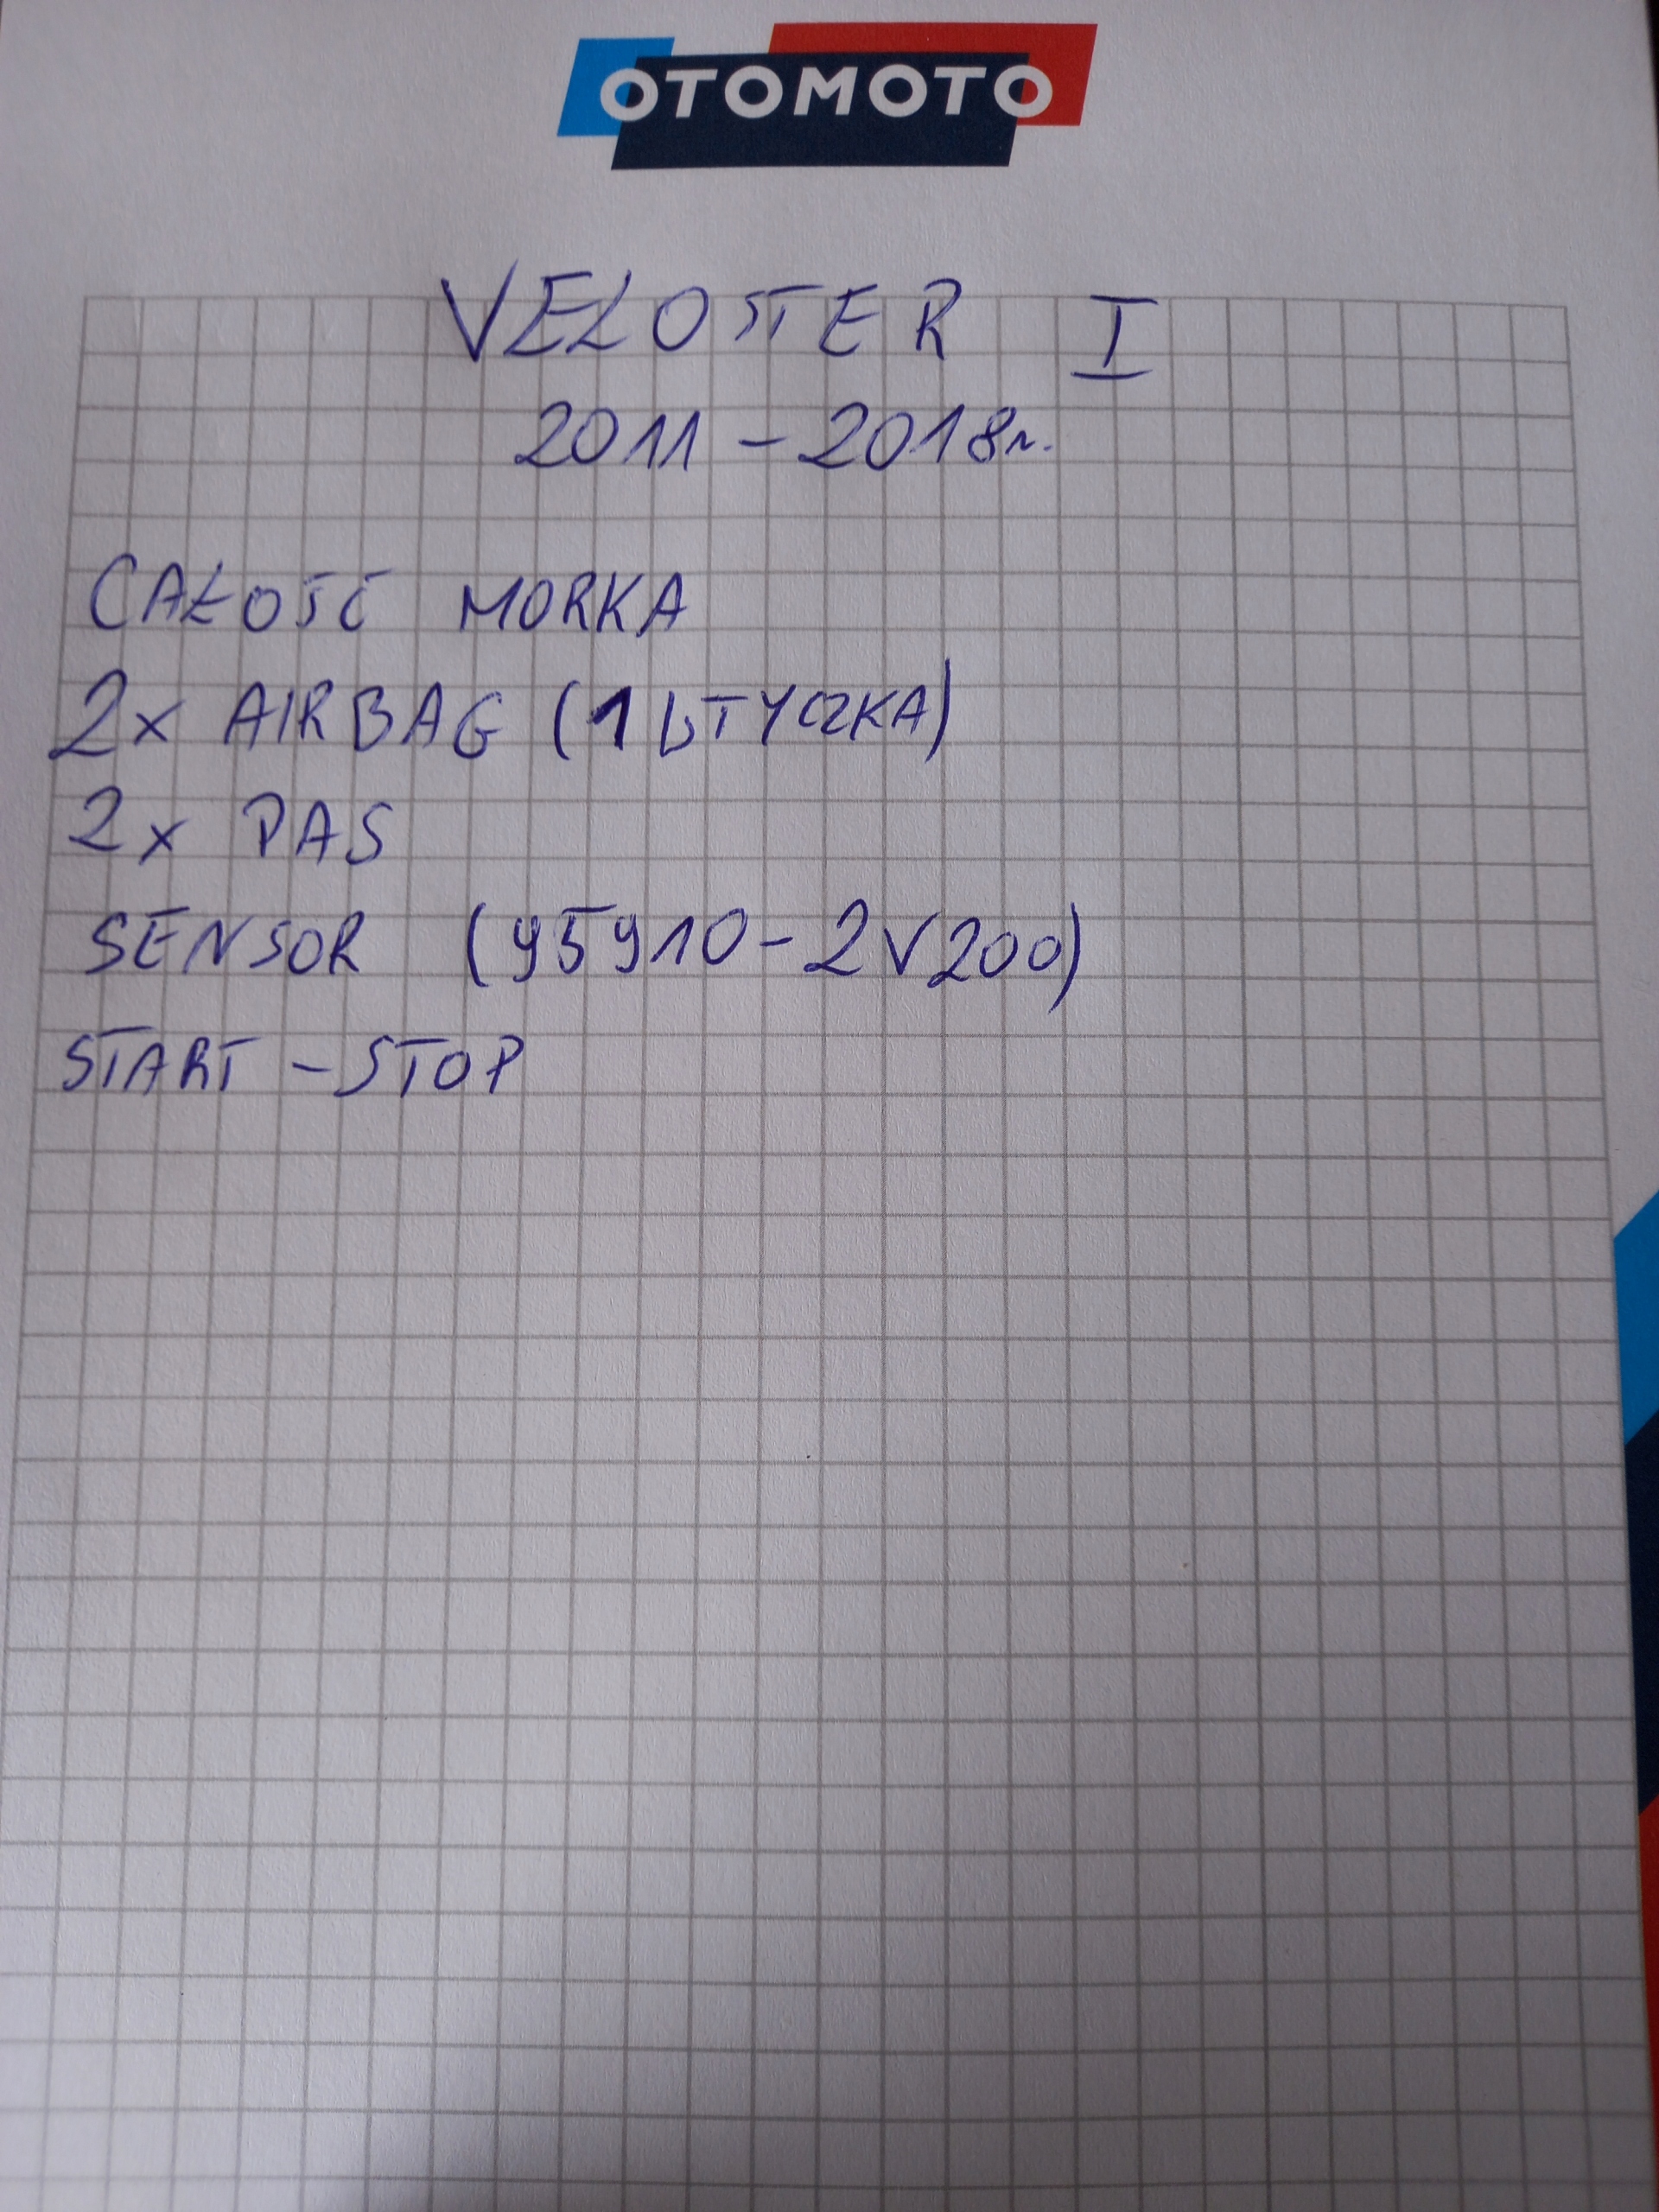 OTOMOTO
VELOSTER I
2011 - 2018r.
CAŁOŚĆ MORKA
2x AIRBAG (1 WTYCZKA)
2x PAS
SENSOR (95910-2V200)
START - STOP